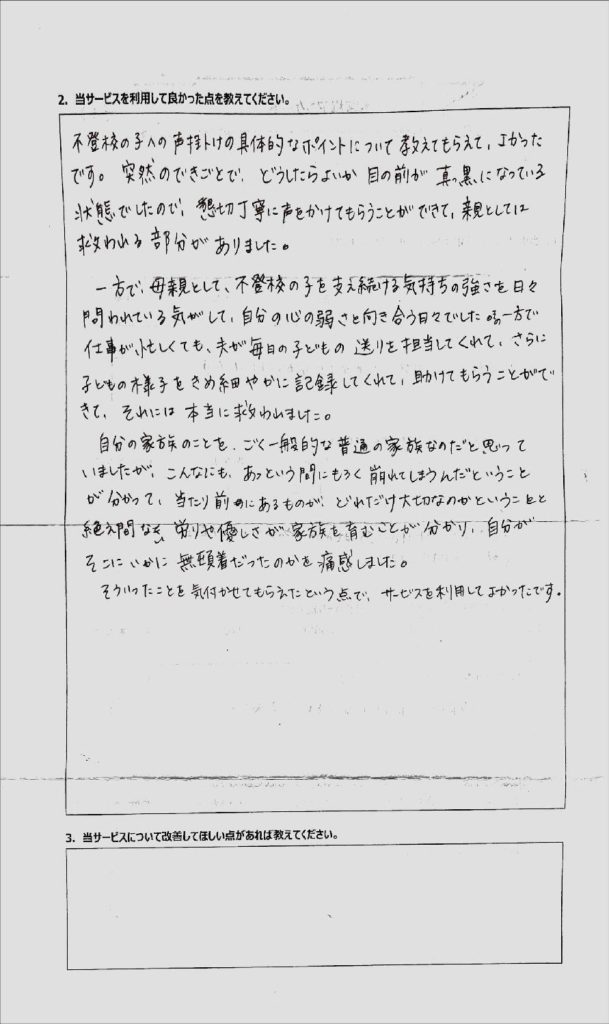 2. 当サービスを利用して良かった点を教えてください。
不登校の子への声掛けの具体的なポイントについて教えてもらえて、よかった
です。突然のできごとで、どうしたらよいか目の前が真っ黒になっている
状態でしたので、懇切丁寧に声をかけてもらうことができて、親としては
救われる部分がありました。
一方で、母親として、不登校の子を支え続ける気持ちの強さを日々
問われている気がして、自分の心の弱さと向き合う日々でした。一方で
仕事が忙しくても、夫が毎日の子どもの送りを担当してくれて、さらに
子どもの様子をきめ細やかに記録してくれて、助けてもらうことがで
きて、それには本当に救われました。
自分の家族のことを、ごく一般的な普通の家族なのだと思って
いましたが、こんなにも、あっという間にもろく崩れてしまうんだということ
が分かって、当たり前にあるものが、どれだけ大切なのかということと
絶え間ない労りや優しさが家族を育むことが分かり、自分が
そこにいかに無頓着だったのかを痛感しました。
そういったことを気付かせてもらえたという点で、サービスを利用してよかったです。
3. 当サービスについて改善してほしい点があれば教えてください。